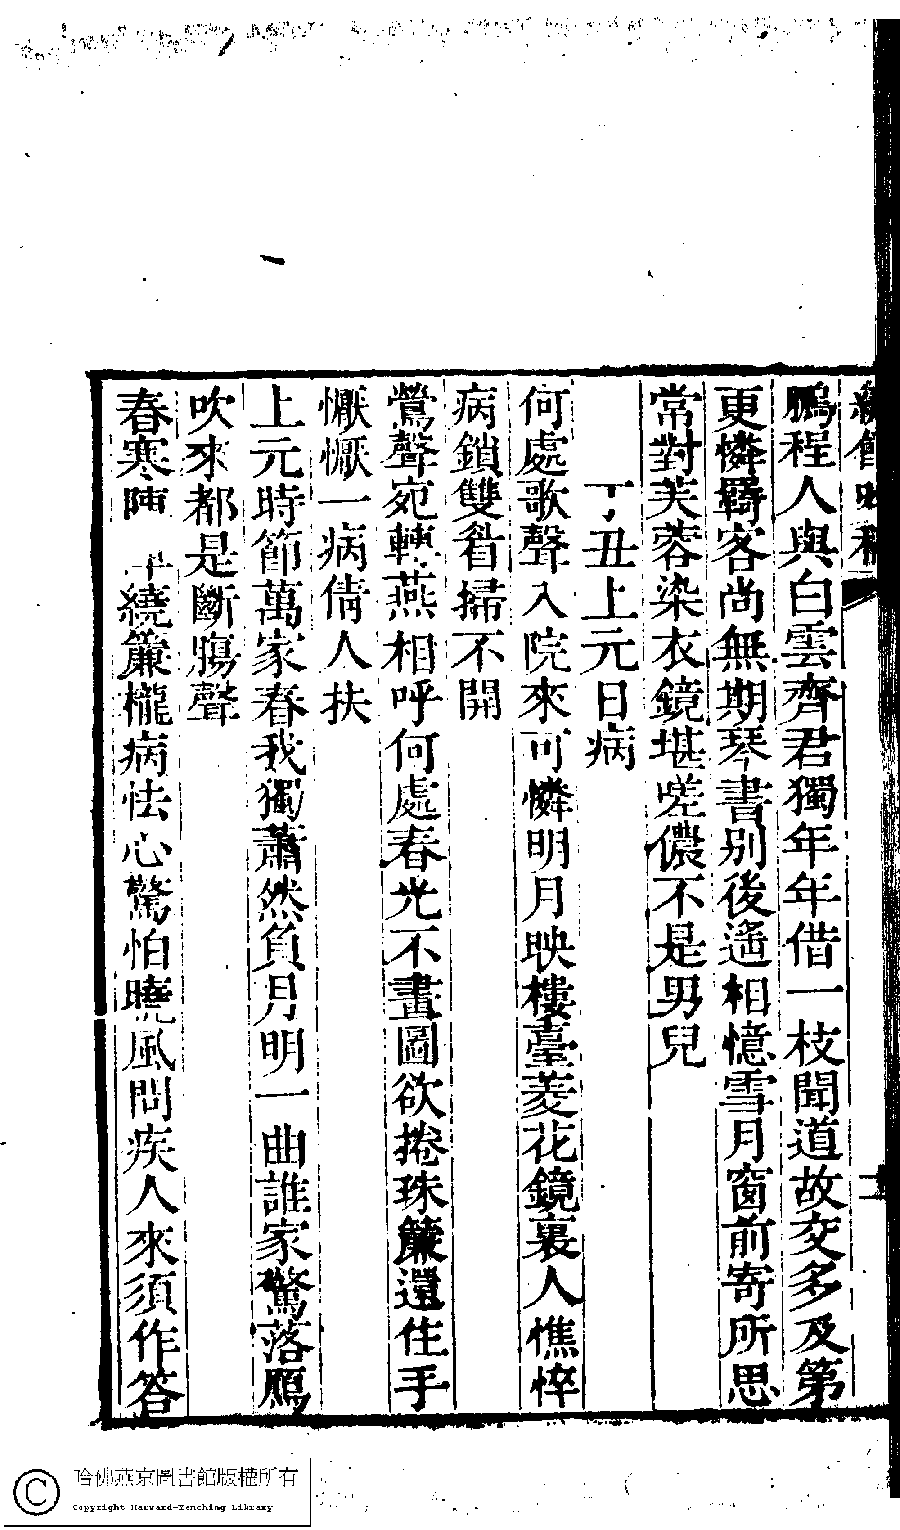 鵬程人與白雲齊君獨年年借一枝聞道故交多及第
更憐羇客尚無期琴書別後遙相憶雪月窗前寄所思
常對芙蓉染衣鏡堪嗟儂不是男兒
丁丑上元日病
何處歌聲入院來可憐明月映樓臺菱花鏡裏人憔悴
病鎖雙眉掃不開
鶯聲宛轉燕相呼何處春光不畫圖欲捲珠簾還住手
懨懨一病倩人扶
上元時節萬家春我獨蕭然負月明一曲誰家驚落鴈
吹來都是斷腸聲
春寒陣 繞簾櫳病怯心驚怕曉風問疾人來須作答
哈佛燕京圖書館版權所有
Copyright Harvard-Yenching Library